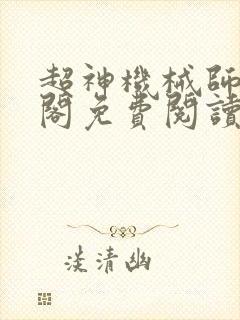 超神機械師
閣免費閱讀
淡清幽